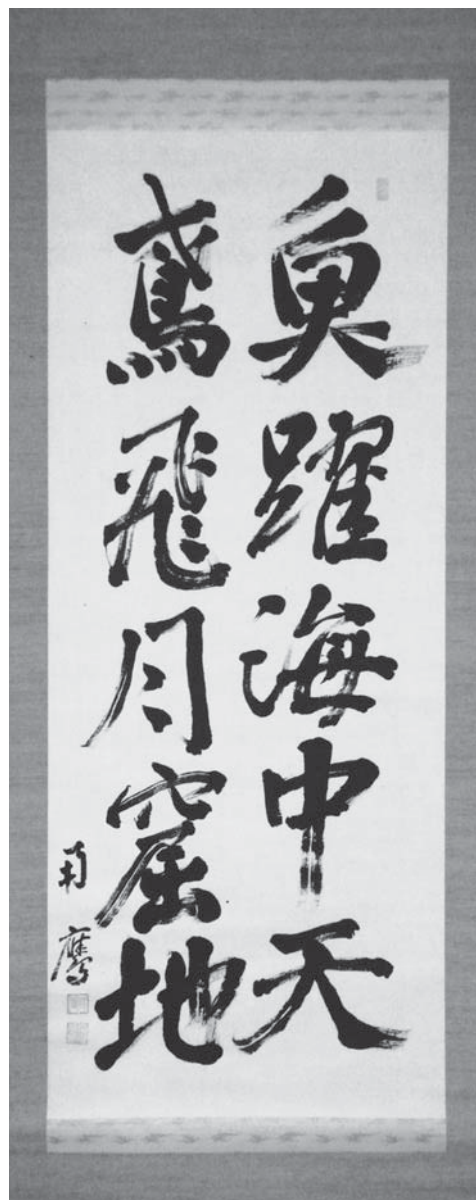 魚躍海中天
鳶飛月窟地
南鷹